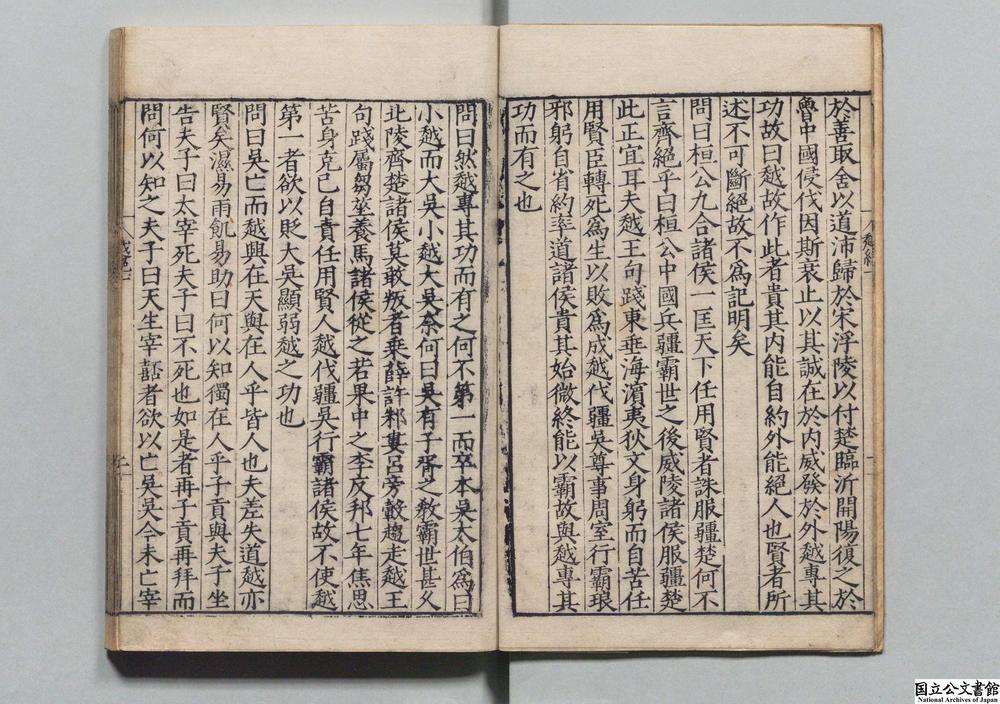 於善取舍以道沛歸於宋浮陵以付楚臨沂開陽復之於
魯中國侵伐因斯衰止以其誠在於内威發於外越專其
功故曰越故作此者貴其内能自約外能絕人也賢者所
述不可斷絕故不爲記明矣
問曰桓公九合諸侯一匡天下任用賢者誅服疆楚何不
言齊絕乎曰桓公中國兵疆霸世之後威陵諸侯服疆楚
此正宜耳夫越王句踐東垂海濱夷狄文身躬而自苦任
用賢臣轉死爲生以敗爲成越伐疆吳尊事周室行霸琅
邪躬自省約率道諸侯貴其始微終能以霸故與越專其
功而有之也
問曰然越專其功而有之何不第一而卒本吳太伯爲曰
小越而大吳小越大吳奈何曰吳有子胥之教霸世甚久
北陵齊楚諸侯莫敢叛者乘薛許邾婁呂旁轂趨走越王
句踐屬芻莝養馬諸侯從之若果中之李反邦七年焦思
苦身克己自責任用賢人越伐疆吳行霸諸侯故不使越
第一者欲以貶大吳顯弱越之功也
問曰吳亡而越興在天與在人乎皆人也夫差失道越亦
賢矣濕易雨飢易助曰何以知獨在人乎子貢與夫子坐
告夫子曰太宰死夫子曰不死也如是者再子貢再拜而
問何以知之夫子曰天生宰嚭者欲以亡吳吳今未亡宰
国立公文書館
National Archives of Japan